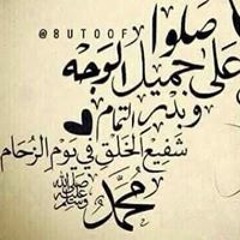 @8UTOOF
صلوا
على جميل الوجه
وبدر التمام
شَفِيع الخَلْقِ فِي يَوْمِ الزُحَام
مُحَمَّد
صلى الله عليه وسلم